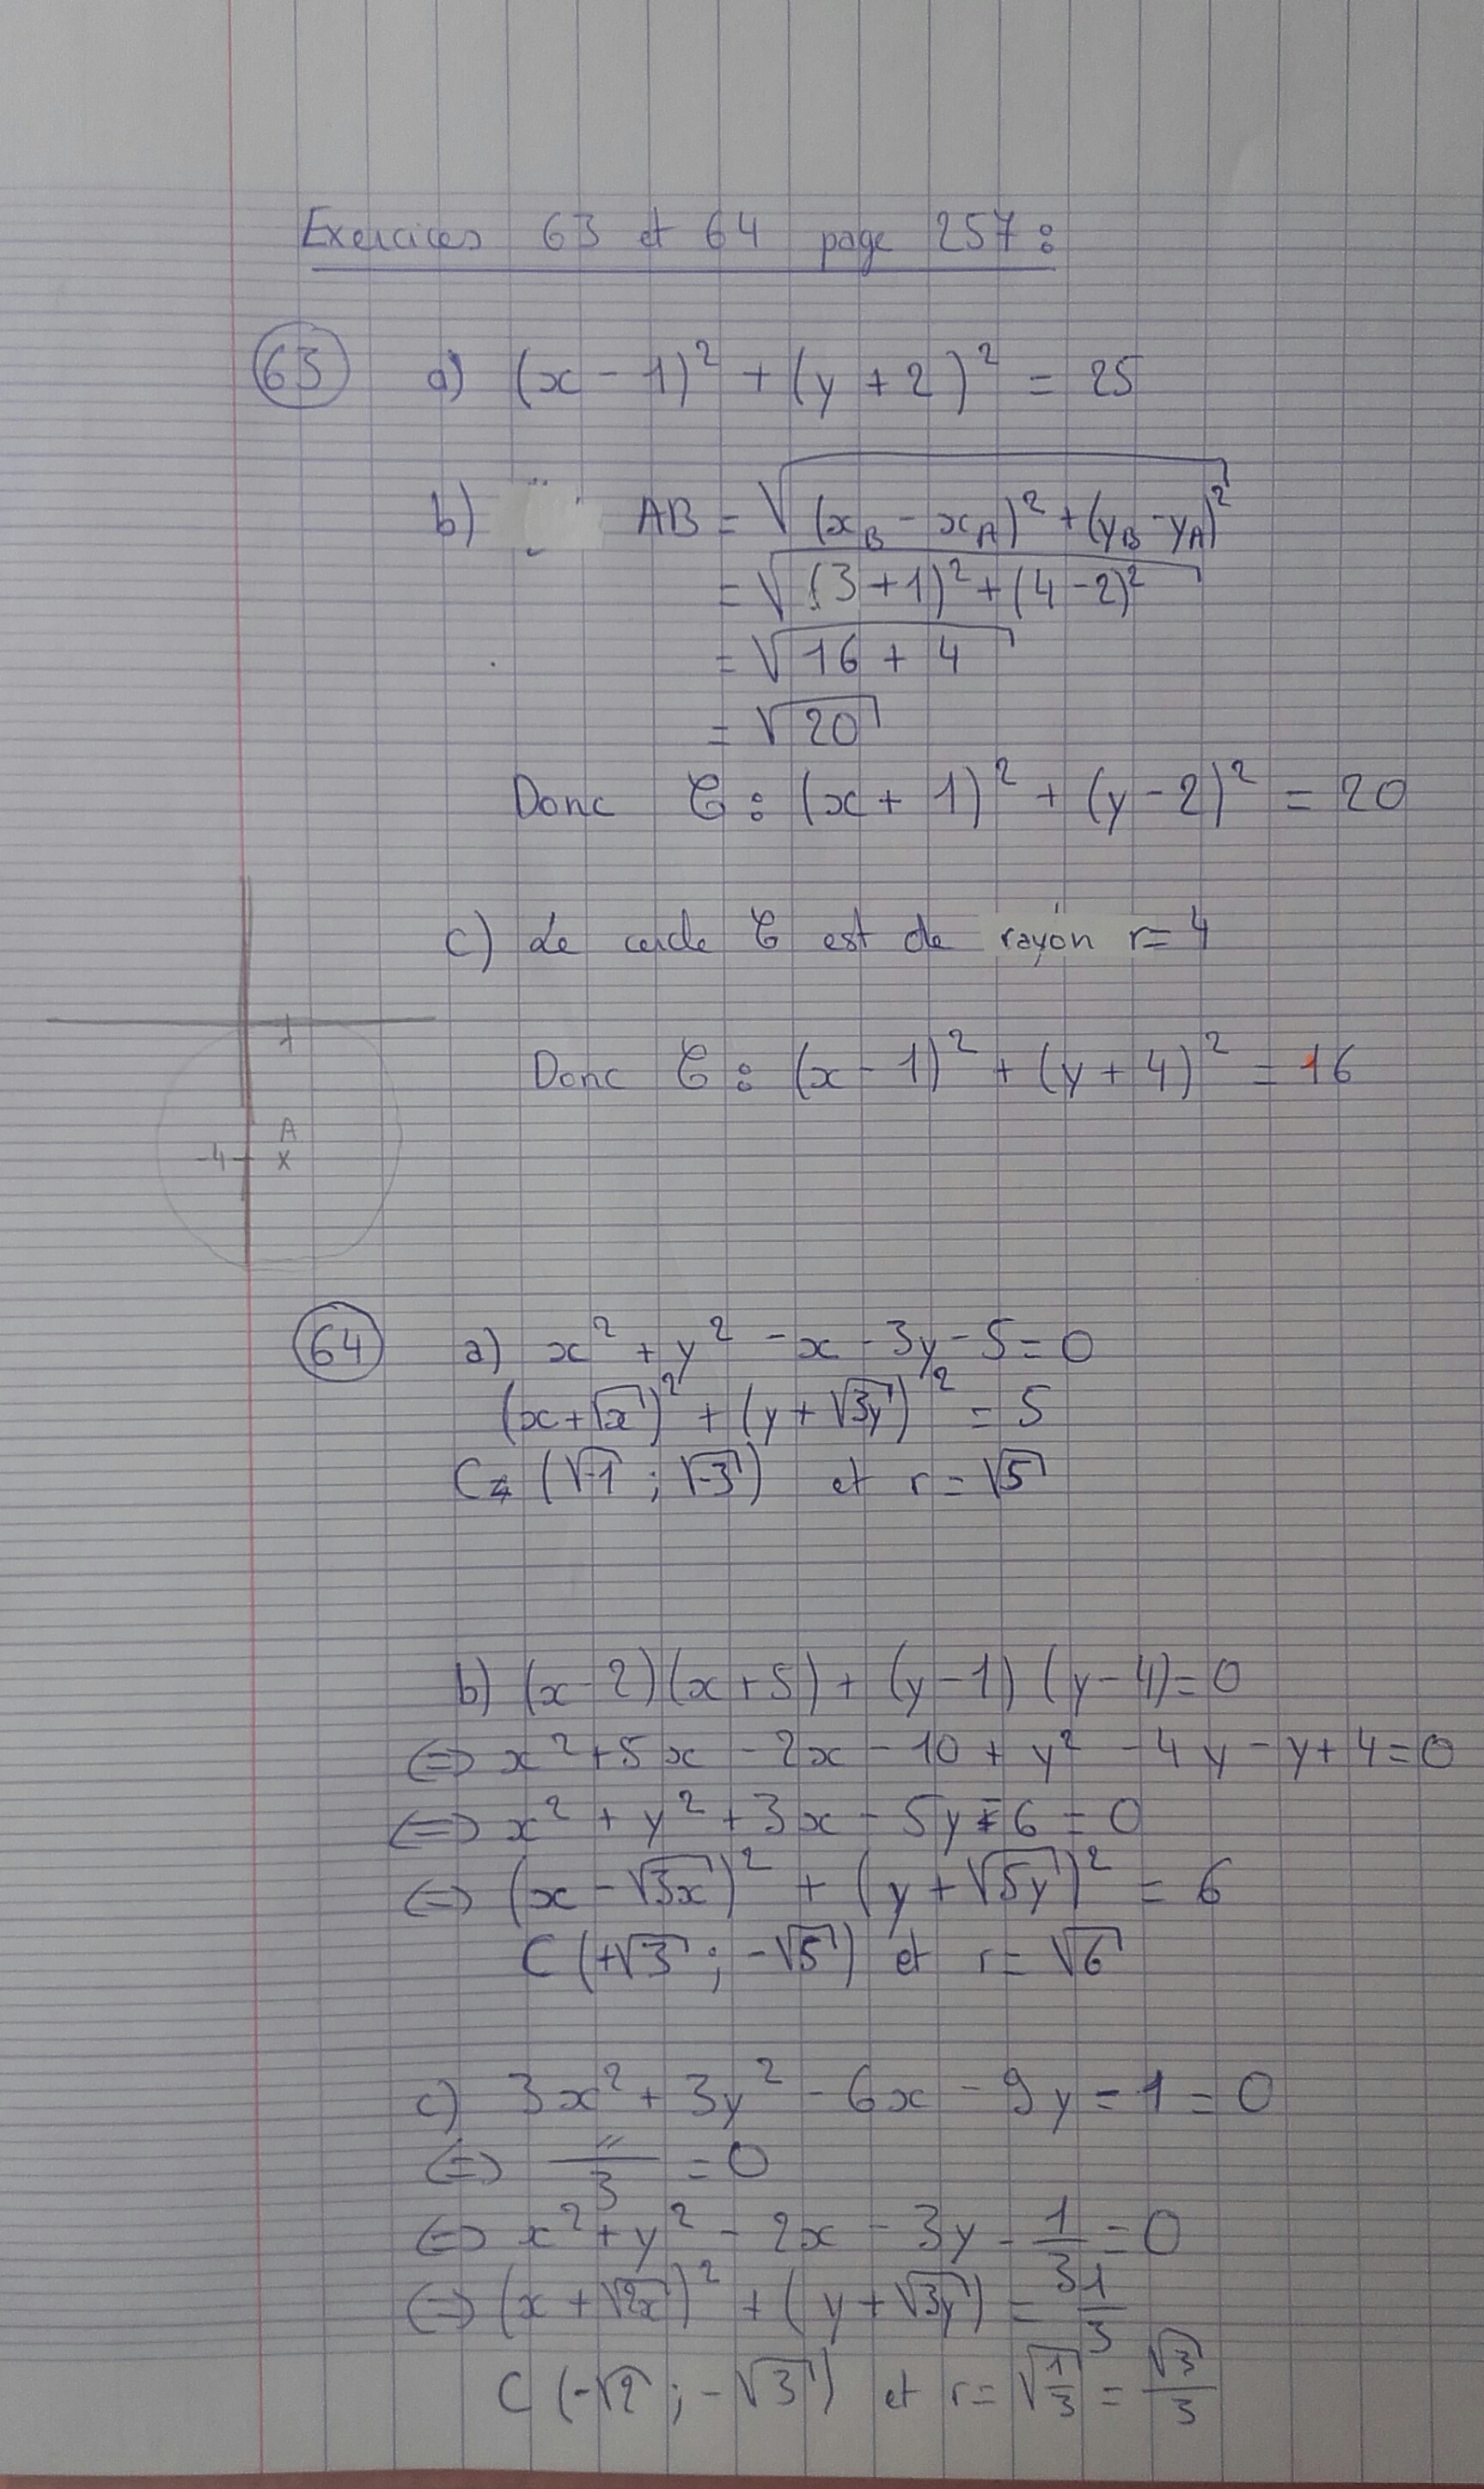 Exercices 63 et 64 page 257 :
63 a) (x - 1)² + (y + 2)² = 25
b) AB = √((x_B - x_A)² + (y_B - y_A)²)
= √((3 + 1)² + (4 - 2)²)
= √(16 + 4)
= √20
Donc C : (x + 1)² + (y - 2)² = 20
c) Le cercle C est de rayon r = 4
1
Donc C : (x - 1)² + (y + 4)² = 16
A
-4 x
64 a) x² + y² - x - 3y - 5 = 0
(x + √x)² + (y + √3y)² = 5
C (√-1 ; √-3) et r = √5
b) (x - 2)(x + 5) + (y - 1)(y - 4) = 0
⇔ x² + 5x - 2x - 10 + y² - 4y - y + 4 = 0
⇔ x² + y² + 3x - 5y - 6 = 0
⇔ (x - √3x)² + (y + √5y)² = 6
C (+√3 ; -√5) et r = √6
c) 3x² + 3y² - 6x - 9y - 1 = 0
⇔ "/3 = 0
⇔ x² + y² - 2x - 3y - 1/3 = 0
⇔ (x + √2x)² + (y + √3y) = 1/3
C (-√2 ; -√3) et r = √(1/3) = √3/3